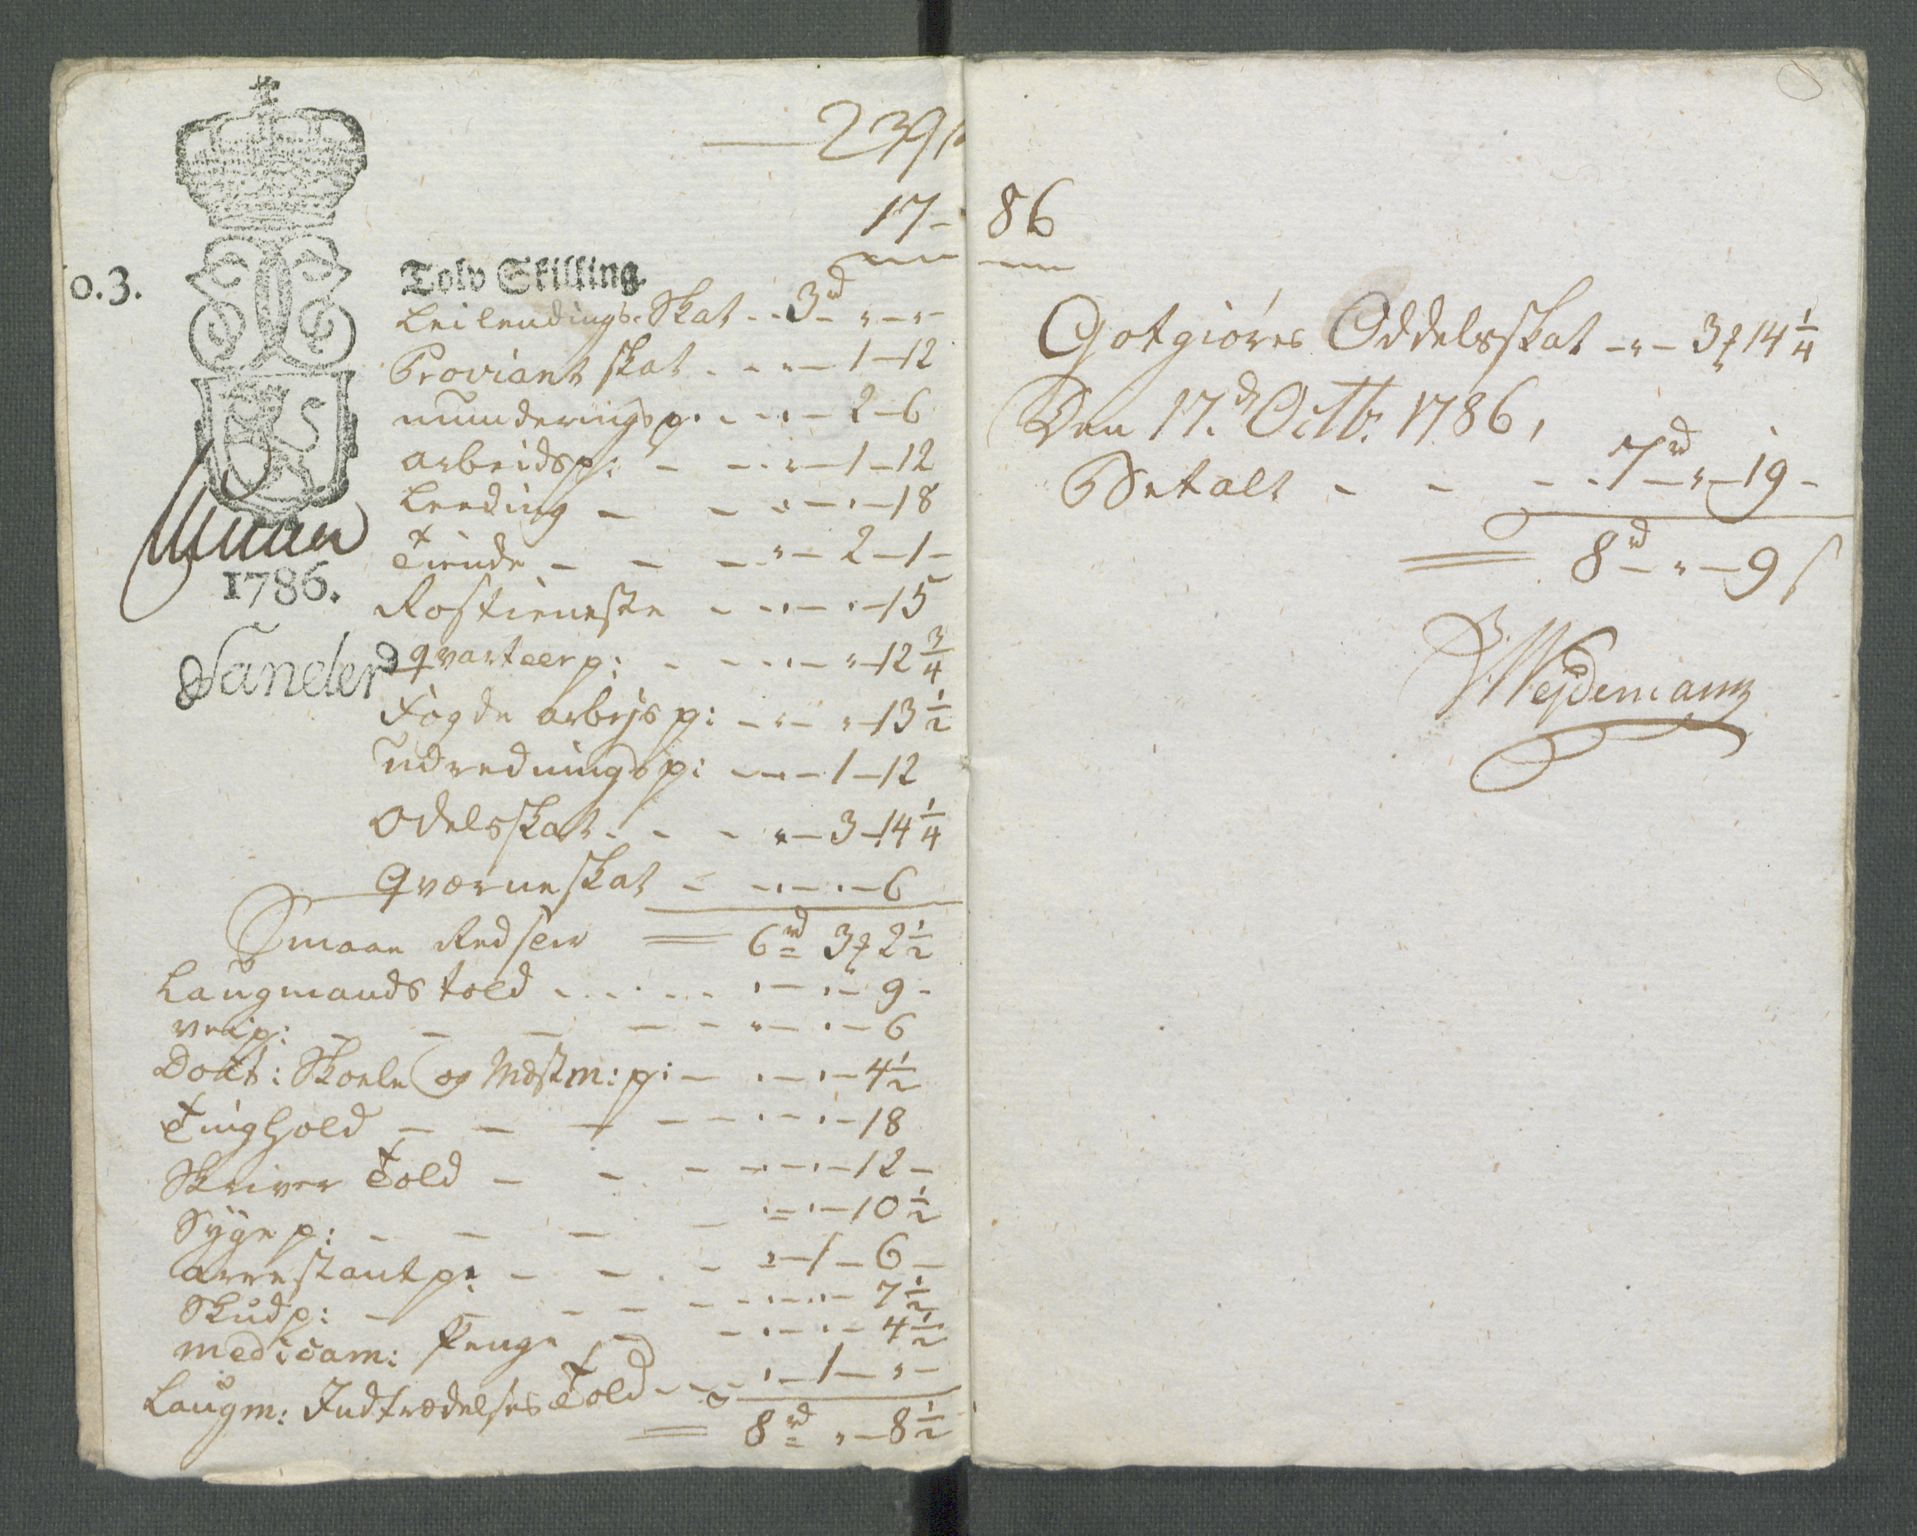 239
17 - 86
o.3.
Tolv Skilling.
Leilendings-Skat - - 3rd - " - " -
Proviant skat - - - " - 1 - 12
munderingsp: - - " - 2 - 6
arbeidsp: - - - " - 1 - 12
Leeding - - " - " - 18
Tiende - - - " - 2 - 1 -
Rostieneste - - " - " - 15
Qvarteerp: - - - " - " - 12 3/4
Fogde arbejs p: - " - " - 13 1/2
udredningsp: - " - 1 - 12
Odelsskat - - - " - 3 - 14 1/4
Qværneskat - - " - " - 6
1786.
Sander
Smaae Redsler = 6rd 3 2 1/2
Laugmands told - - - " - " - 9 -
veip: - - - - " - " - 6
Doct: Skole og Mdstm: p: - " - " - 4 1/2
Tinghold - - - - " - " - 18
Skriver Told - - - " - " - 12 -
Syge p: - - - - " - " - 10 1/2
arrestantp: - - - " - 1 - 6 -
Skudp: - - - - " - " - 7 1/2
medicam: Penge - - " - " - 4 1/2
Laugm: Indtrædelses Told - - - " - 1 - " -
= 8rd " - 8 1/2
Gotgiøres Oddelsskat - " - 3 14 1/4
Den 17d Octb: 1786,
Betalt - - - - 7rd - " - 19 -
= 8rd - " - 9 s
Wejdemann